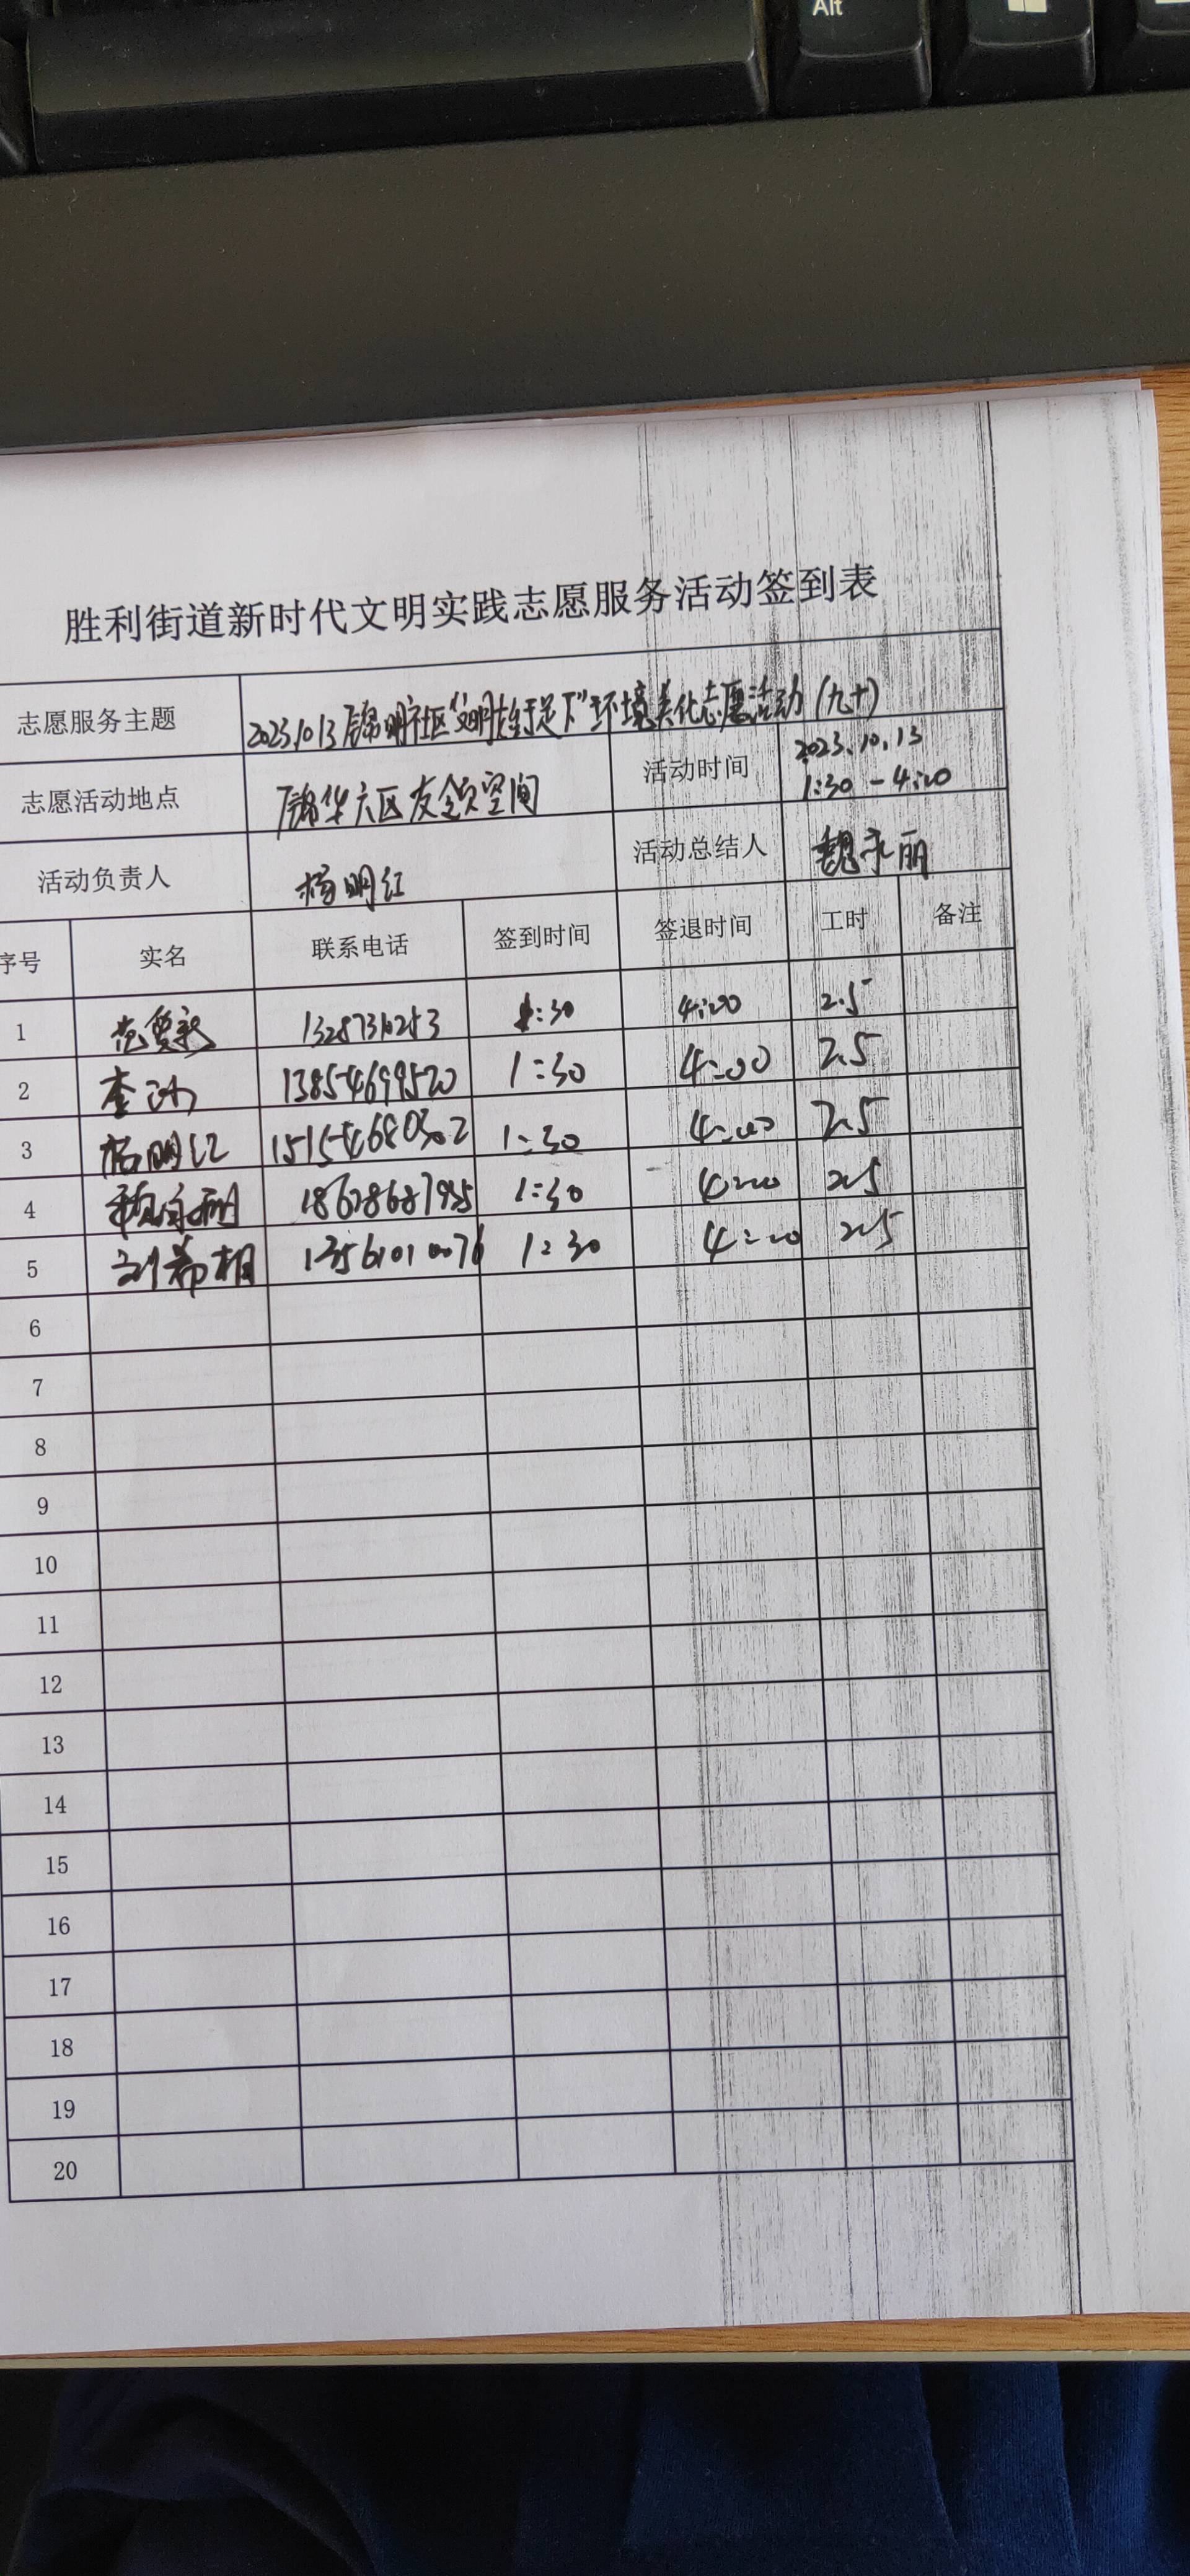 Alt
胜利街道新时代文明实践志愿服务活动签到表
志愿服务主题 2023.10.13 锦明社区"文明始于足下"环境美化志愿活动(九十)
志愿活动地点 锦华六区友邻空间 活动时间 2023.10.13
1:30-4:00
活动负责人 杨明红 活动总结人 魏永丽
序号 实名 联系电话 签到时间 签退时间 工时 备注
1 1:30 4:00 2.5
2 13854699520 1:30 4:00 2.5
3 杨明红 15154680302 1:30 4:00 2.5
4 魏永丽 1:30 4:00 2.5
5 13561010076 1:30 4:00 2.5
6
7
8
9
10
11
12
13
14
15
16
17
18
19
20